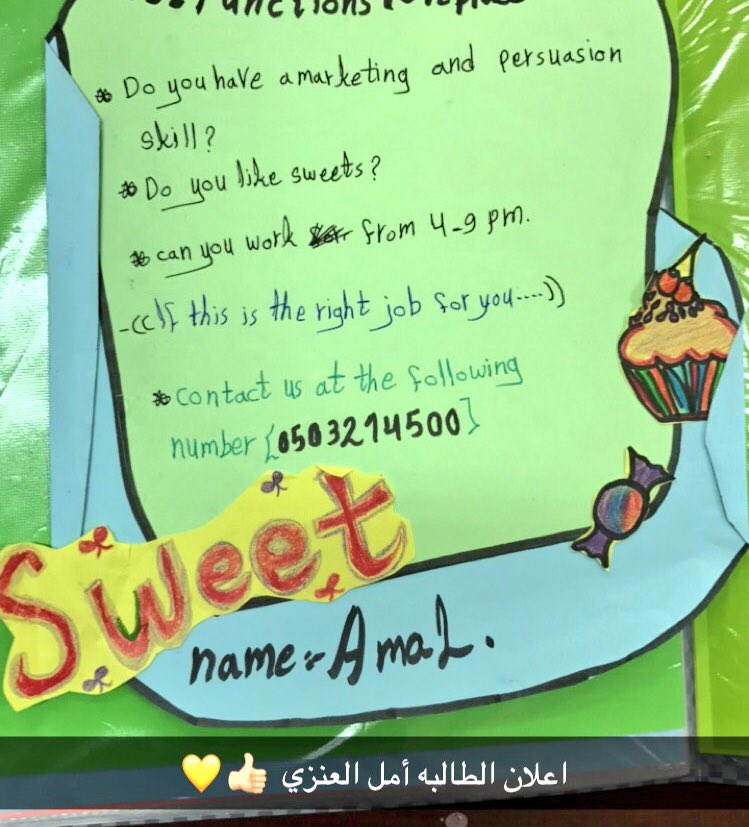 Functions
* Do you have a marketing and persuasion
skill?
* Do you like sweets?
* can you work from 4-9 pm.
-((If this is the right job for you....))
* contact us at the following
number {0503214500}
Sweet
name:- Amal.
اعلان الطالبه أمل العنزي 👍🏻💛